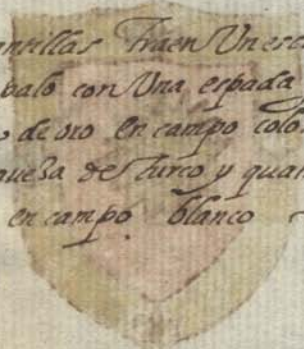 antillas Traen Un esc
palo con Una espada
de oro en campo colo
de turco y quar
en campo blanco